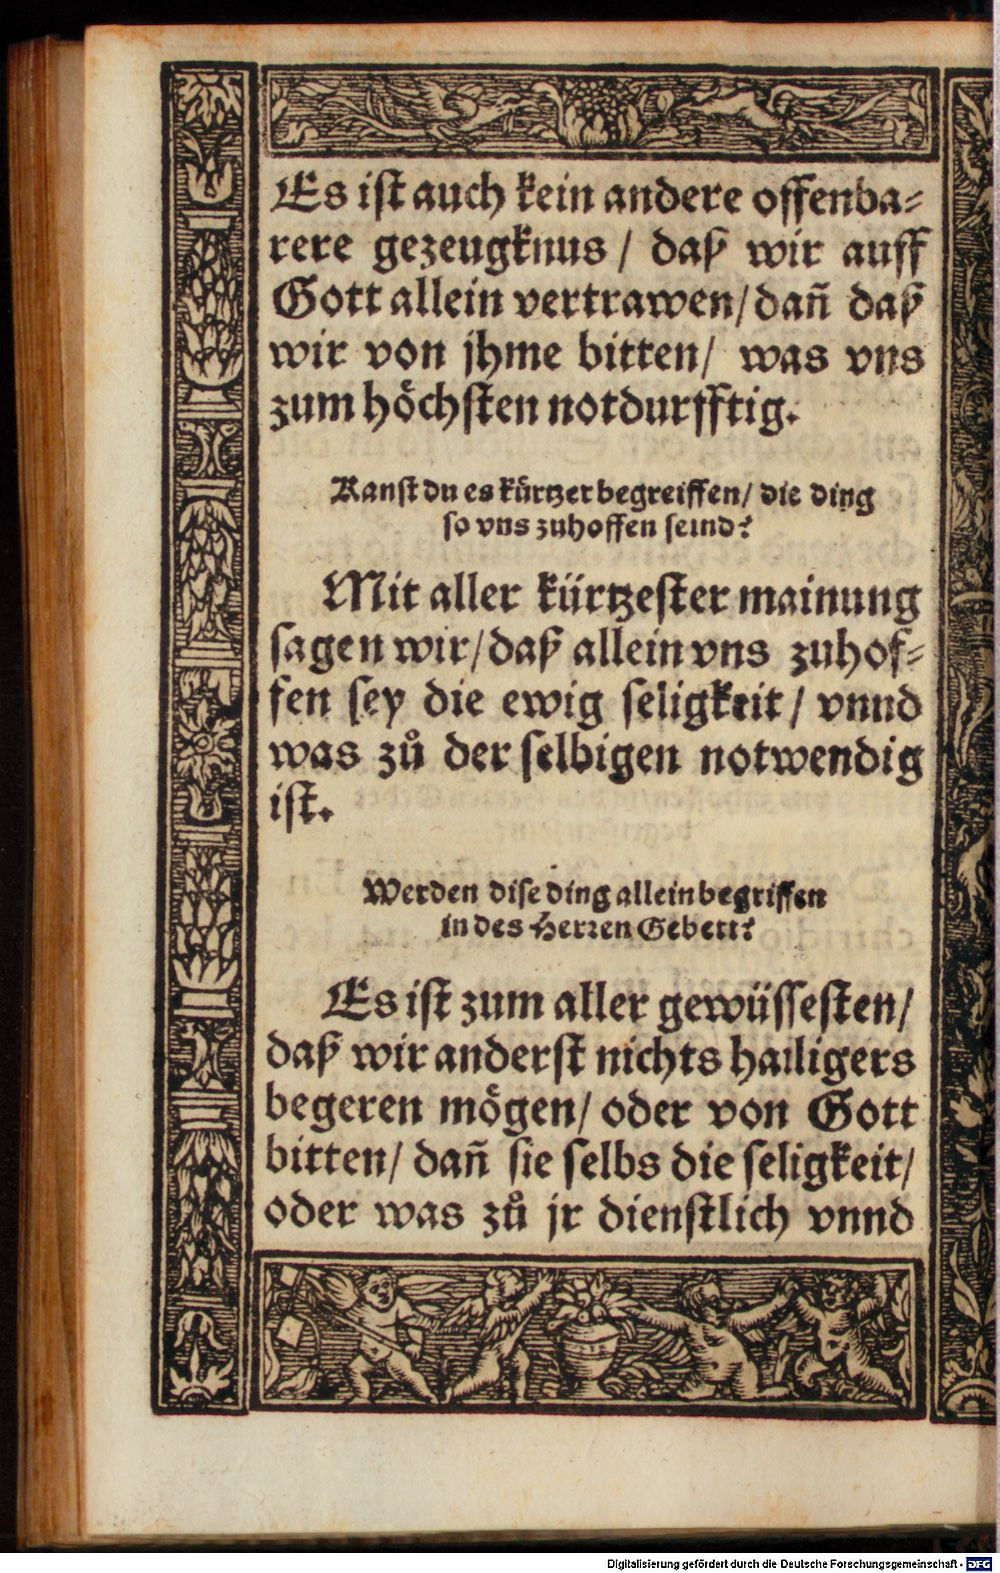 Es ist auch kein andere offenba⸗
rere gezeugknus / daß wir auff
Gott allein vertrawen / dañ daß
wir von jhme bitten / was vns
zum höchsten notdurfftig.
Kanst du es kürtzer begreiffen / die ding
so vns zuhoffen seind?
Mit aller kürtzester mainung
sagen wir / daß allein vns zuhof⸗
fen sey die ewig seligkeit / vnnd
was zů der selbigen notwendig
ist.
Werden dise ding allein begriffen
in des Herren Gebett?
Es ist zum aller gewüssesten /
daß wir anderst nichts hailigers
begeren mögen / oder von Gott
bitten / dañ sie selbs die seligkeit /
oder was zů jr dienstlich vnnd
Digitalisierung gefördert durch die Deutsche Forschungsgemeinschaft - DFG